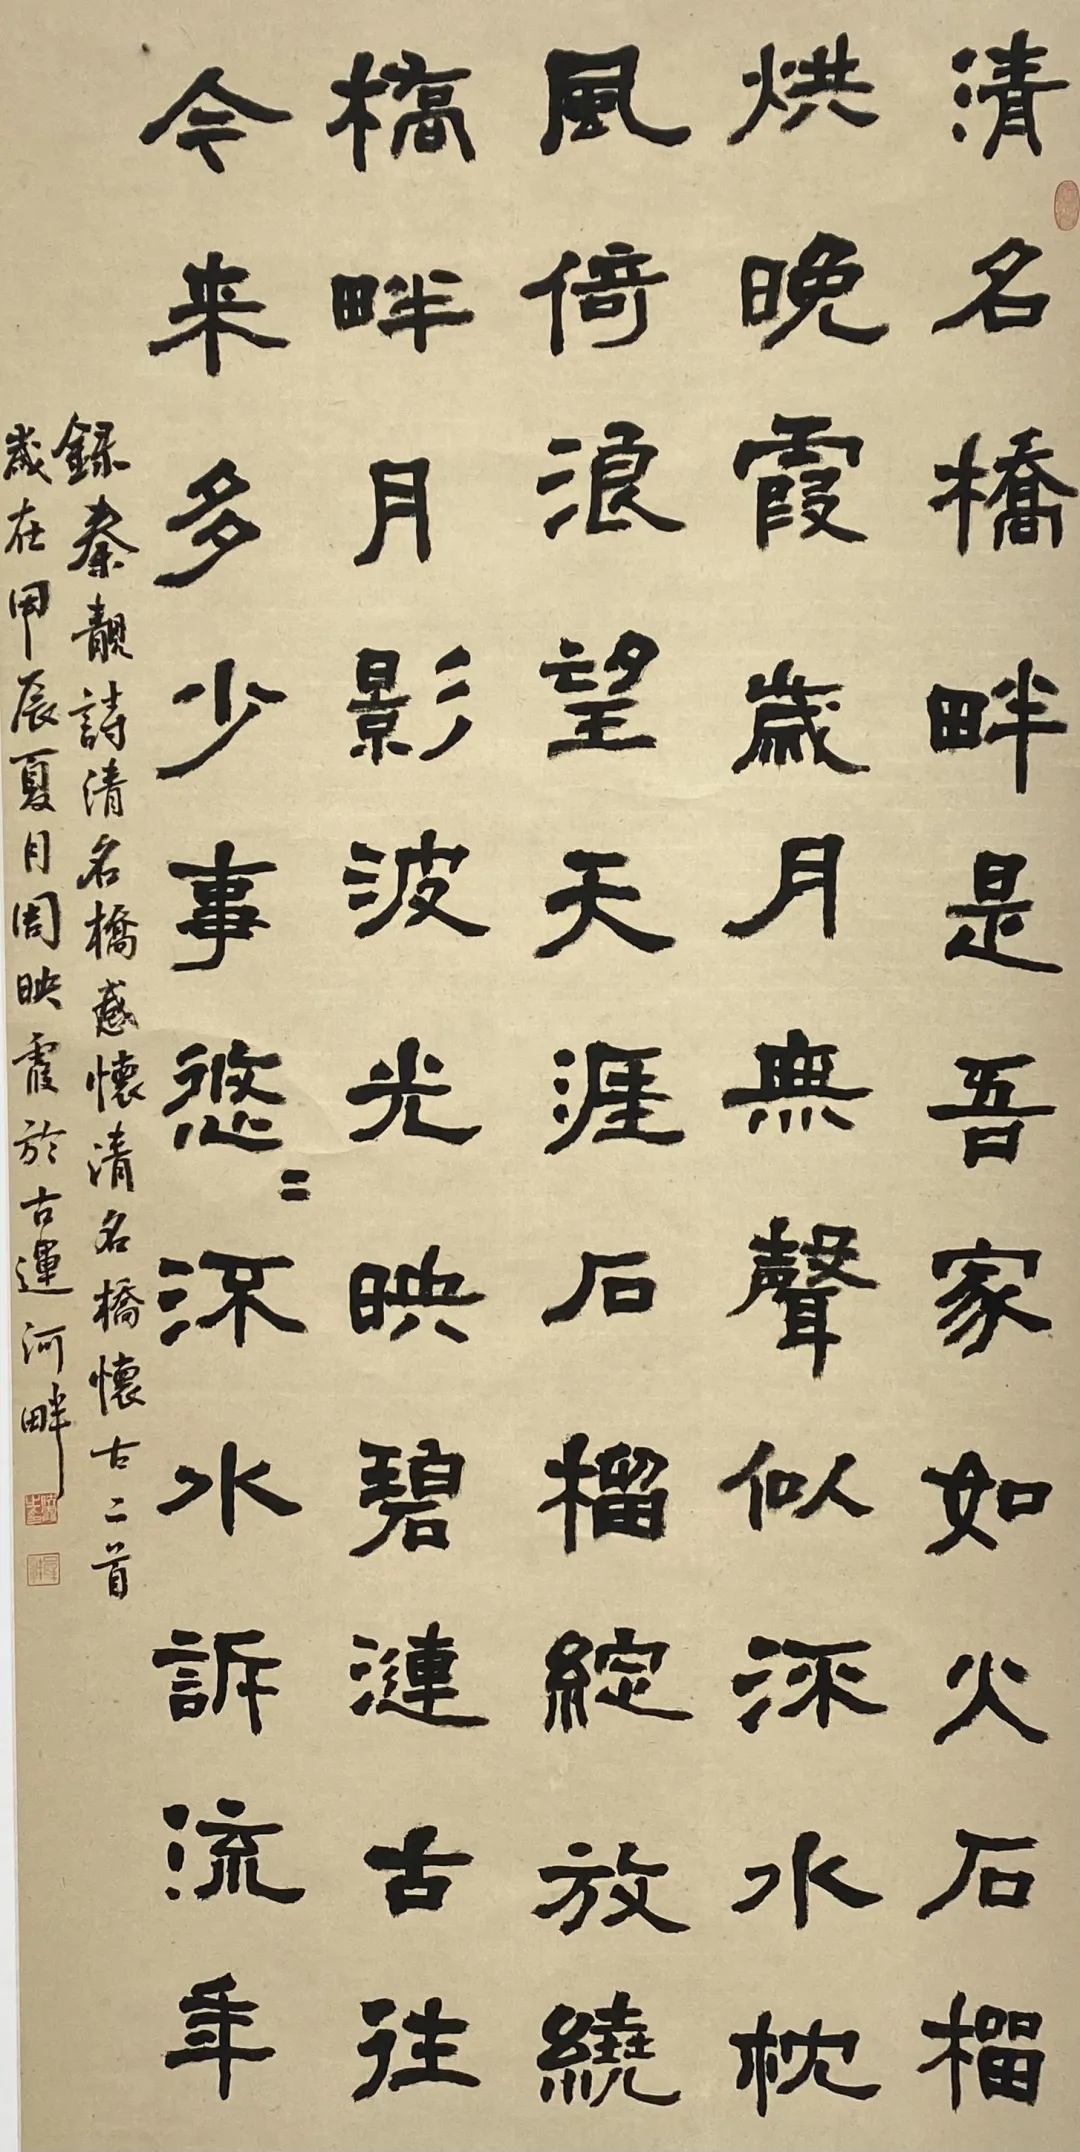 清名橋畔是吾家如火石榴
烘晚霞歲月無聲似流水枕
風倚浪望天涯石榴綻放繞
橋畔月影波光映碧漣古往
今来多少事悠〻流水訴流年
録秦靚詩清名橋感懷清名橋懷古二首
歲在甲辰夏月周映霞於古運河畔